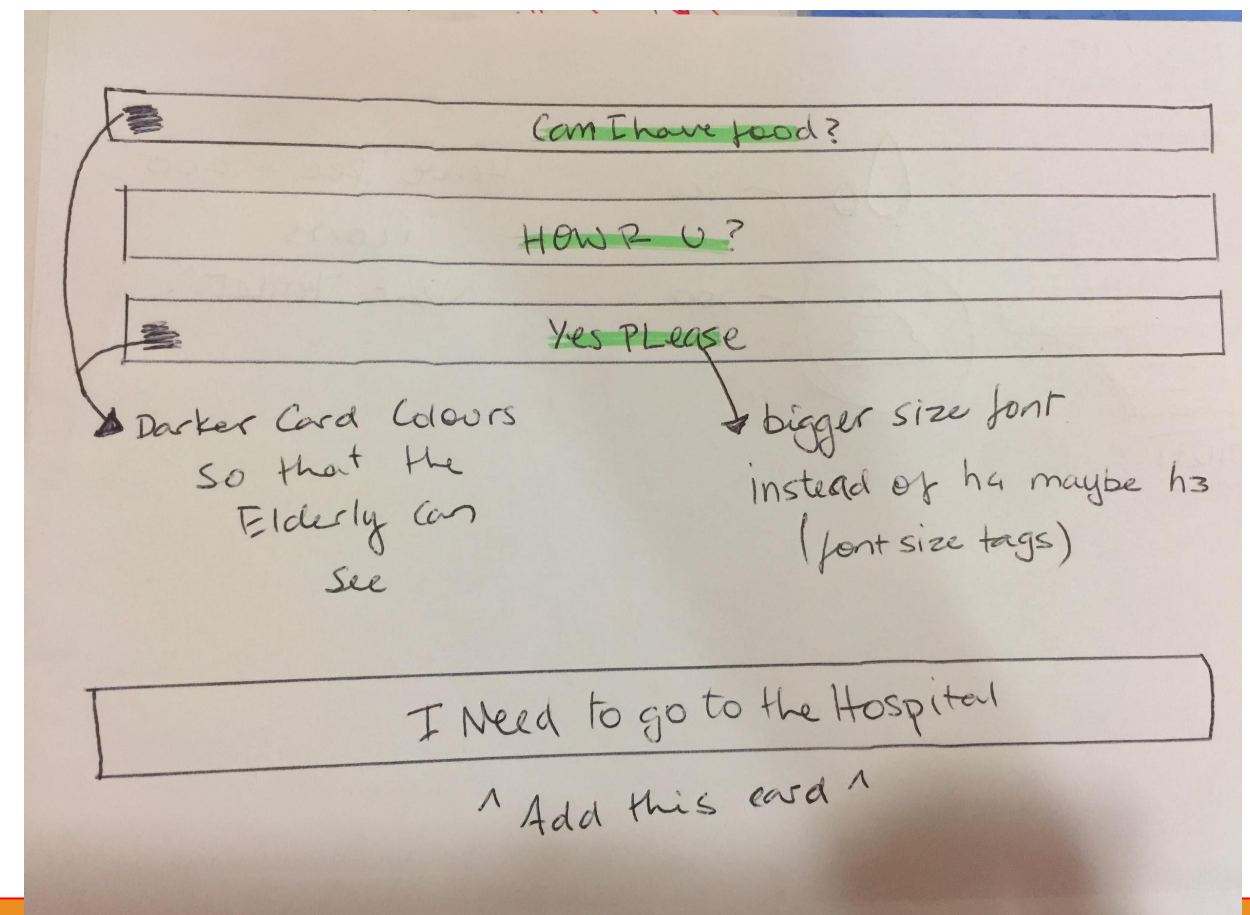 Can I have food?
HOW R U?
Yes PLease
Darker Card Colours
so that the
Elderly Can
See
bigger size font
instead of h4 maybe h3
(font size tags)
I Need to go to the Hospital
^ Add this card ^